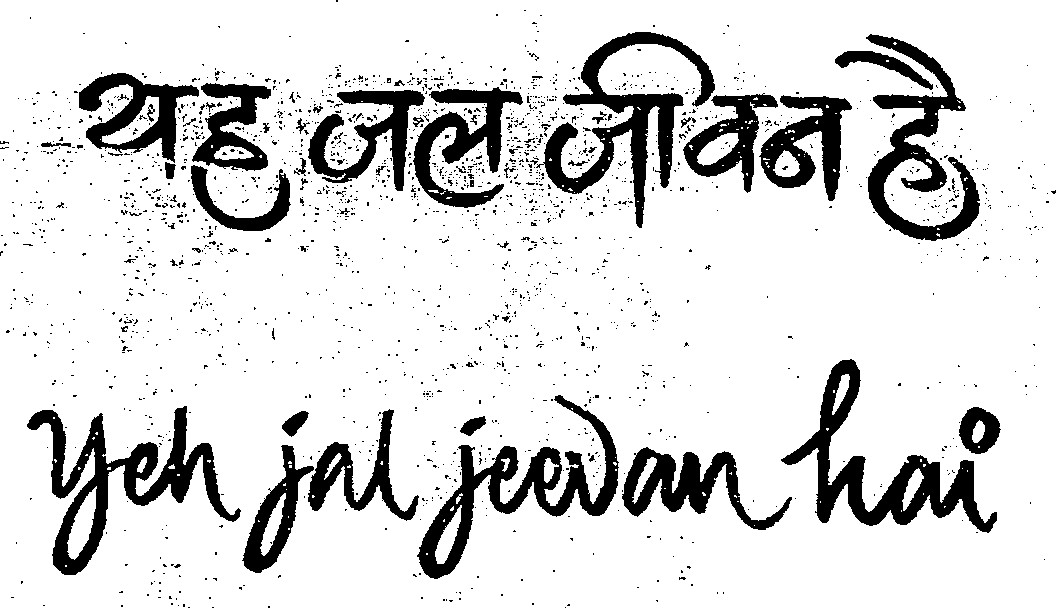 यह जल जीवन है
yeh jal jeevan hai